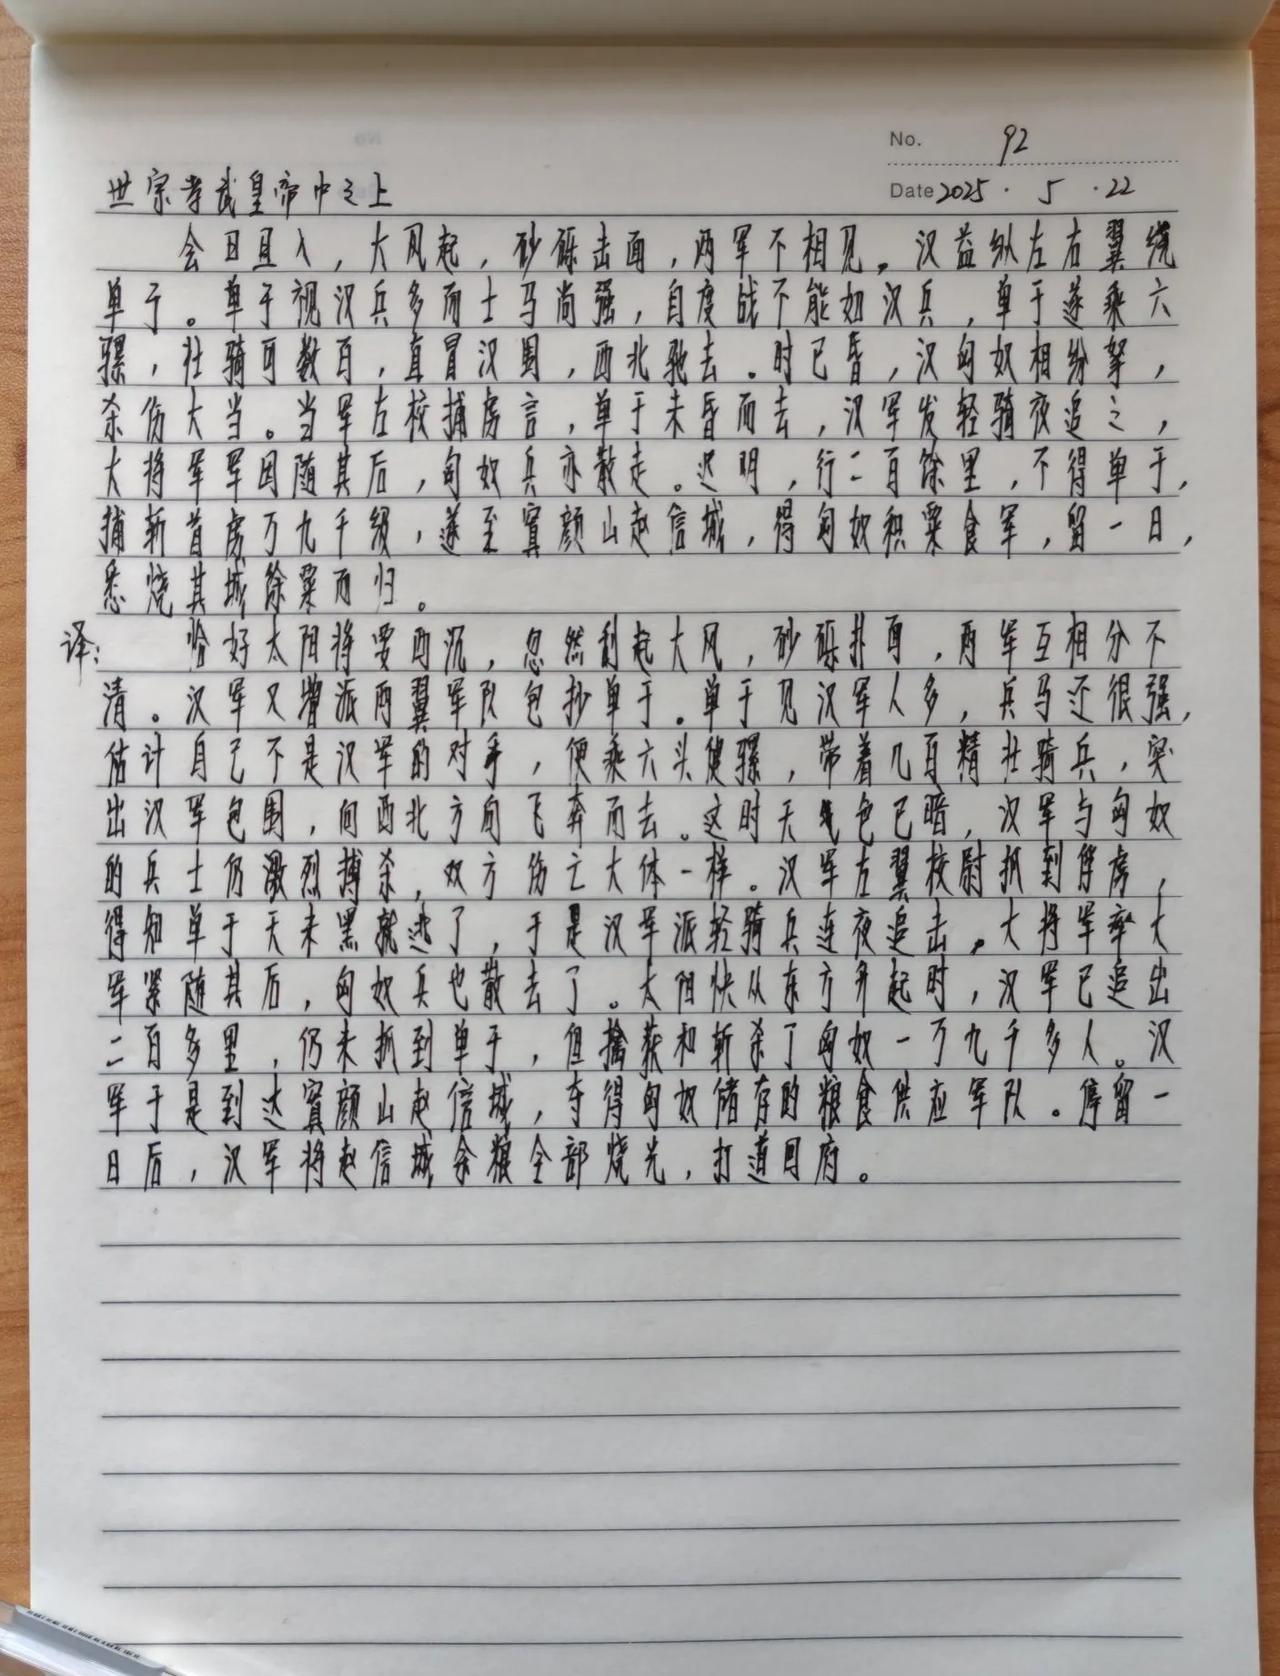 No. 92
世宗孝武皇帝中之上
Date 2025 · 5 · 22
会日且入，大风起，砂砾击面，两军不相见。汉益纵左右翼绕
单于。单于视汉兵多而士马尚强，自度战不能如汉兵，单于遂乘六
骡，壮骑可数百，直冒汉围，西北驰去。时已昏，汉匈奴相纷拏，
杀伤大当。当军左校捕虏言，单于未昏而去，汉军发轻骑夜追之，
大将军军因随其后，匈奴兵亦散走。迟明，行二百馀里，不得单于，
捕斩首虏万九千级，遂至窴颜山赵信城，得匈奴积粟食军，留一日，
悉烧其城馀粟而归。
译：恰好太阳将要西沉，忽然刮起大风，砂砾扑面，两军互相分不
清。汉军又增派两翼军队包抄单于。单于见汉军人多，兵马还很强，
估计自己不是汉军的对手，便乘六头健骡，带着几百精壮骑兵，突
出汉军包围，向西北方向飞奔而去。这时天色已暗，汉军与匈奴
的兵士仍激烈搏杀，双方伤亡大体一样。汉军左翼校尉抓到俘虏，
得知单于天未黑就逃了，于是汉军派轻骑兵连夜追击。大将军率大
军紧随其后，匈奴兵也散去了。太阳快从东方升起时，汉军已追出
二百多里，仍未抓到单于，但擒获和斩杀了匈奴一万九千多人。汉
军于是到达窴颜山赵信城，夺得匈奴储存的粮食供应军队。停留一
日后，汉军将赵信城余粮全部烧光，打道回府。